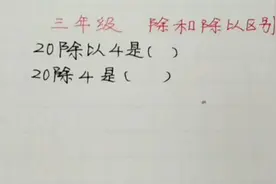 三年级 除和除以区别
20除以4是( )
20除4是( )